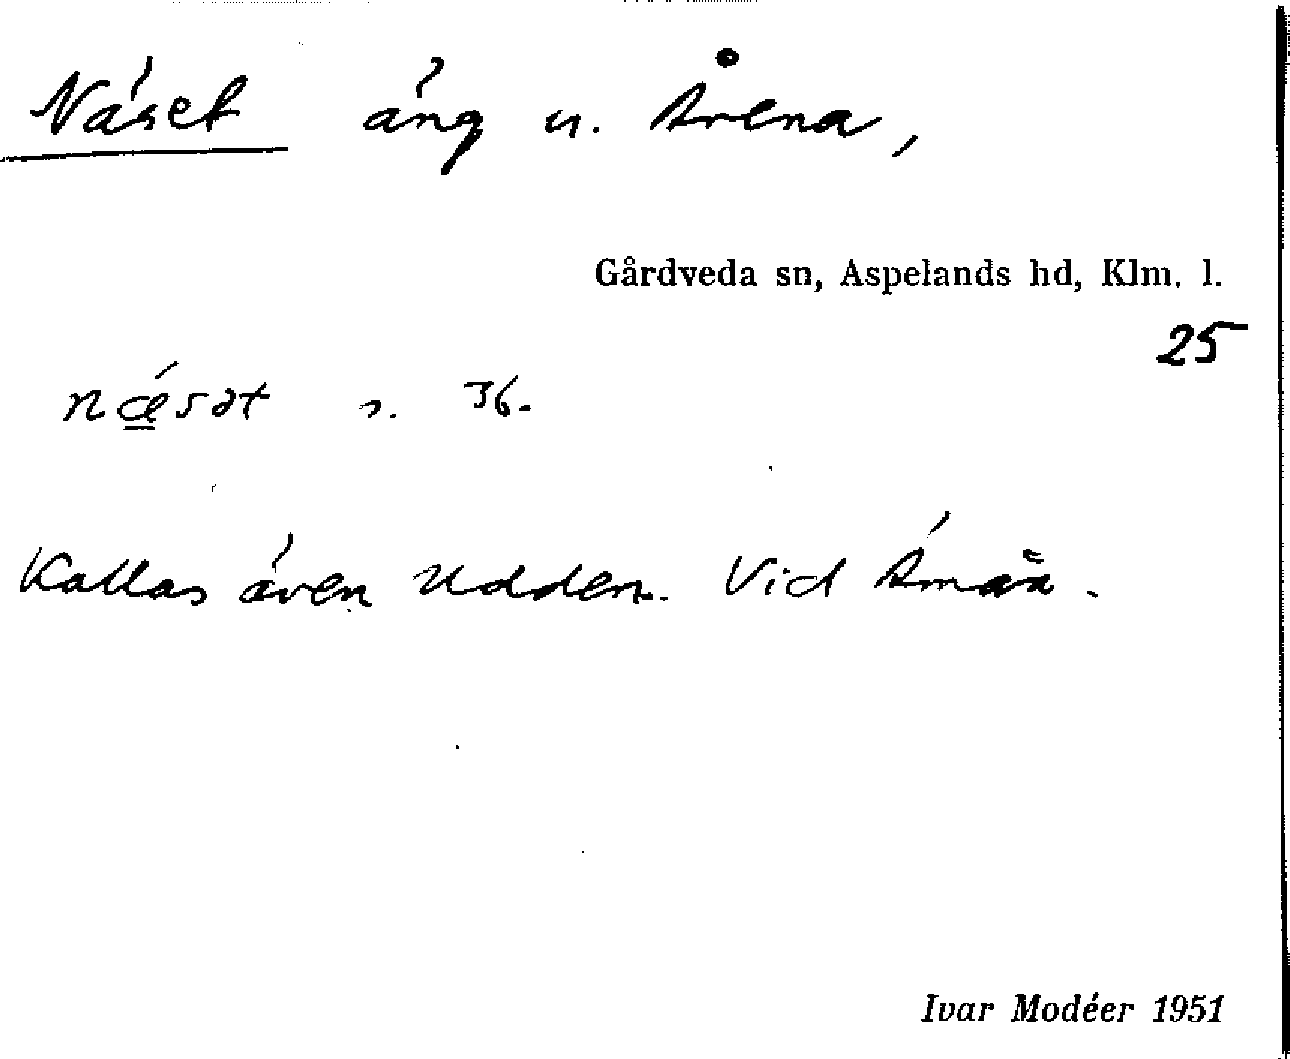 Näset äng u. Årena,
Gårdveda sn, Aspelands hd, Klm. l.
25
nǽ̲sət s. 36.
Kallas även Udden. Vid Åmån.
Ivar Modéer 1951